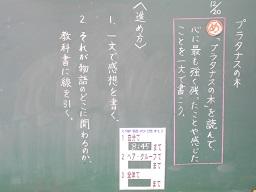 12/20
プラタナスの木
め
「プラタナスの木」を読んで、
心に最も強く残ったことや感じた
ことを一文で書こう。
〈進め方〉
1. 一文で感想を書く。
2. それが物語のどこに関わるのか、
教科書に線を引く。
1 自分で
8:45 まで
2 ペア・グループで
まで
3 全体で
まで